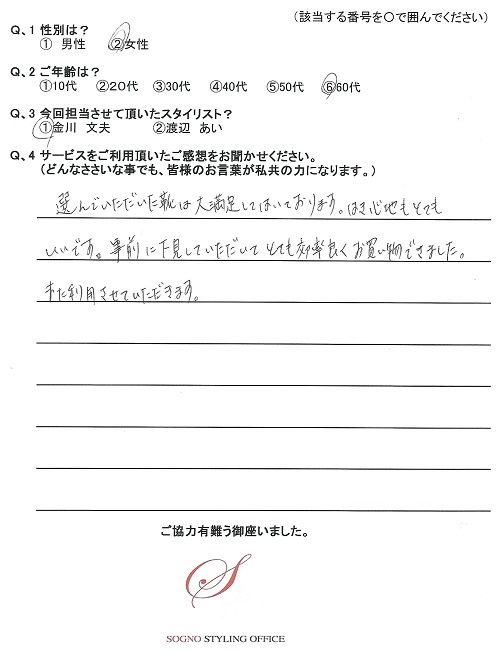 (該当する番号を〇で囲んでください)
Q、1 性別は?
① 男性 ②女性
Q、2 ご年齢は?
①10代 ②20代 ③30代 ④40代 ⑤50代 ⑥60代
Q、3 今回担当させて頂いたスタイリスト?
①金川 文夫 ②渡辺 あい
Q、4 サービスをご利用頂いたご感想をお聞かせください。
(どんなささいな事でも、皆様のお言葉が私共の力になります。)
選んでいただいた靴は大満足してはいております。はき心地もとても
いいです。事前に下見していただいてとても効率良くお買い物できました。
また利用させていただきます。
ご協力有難う御座いました。
S
SOGNO STYLING OFFICE